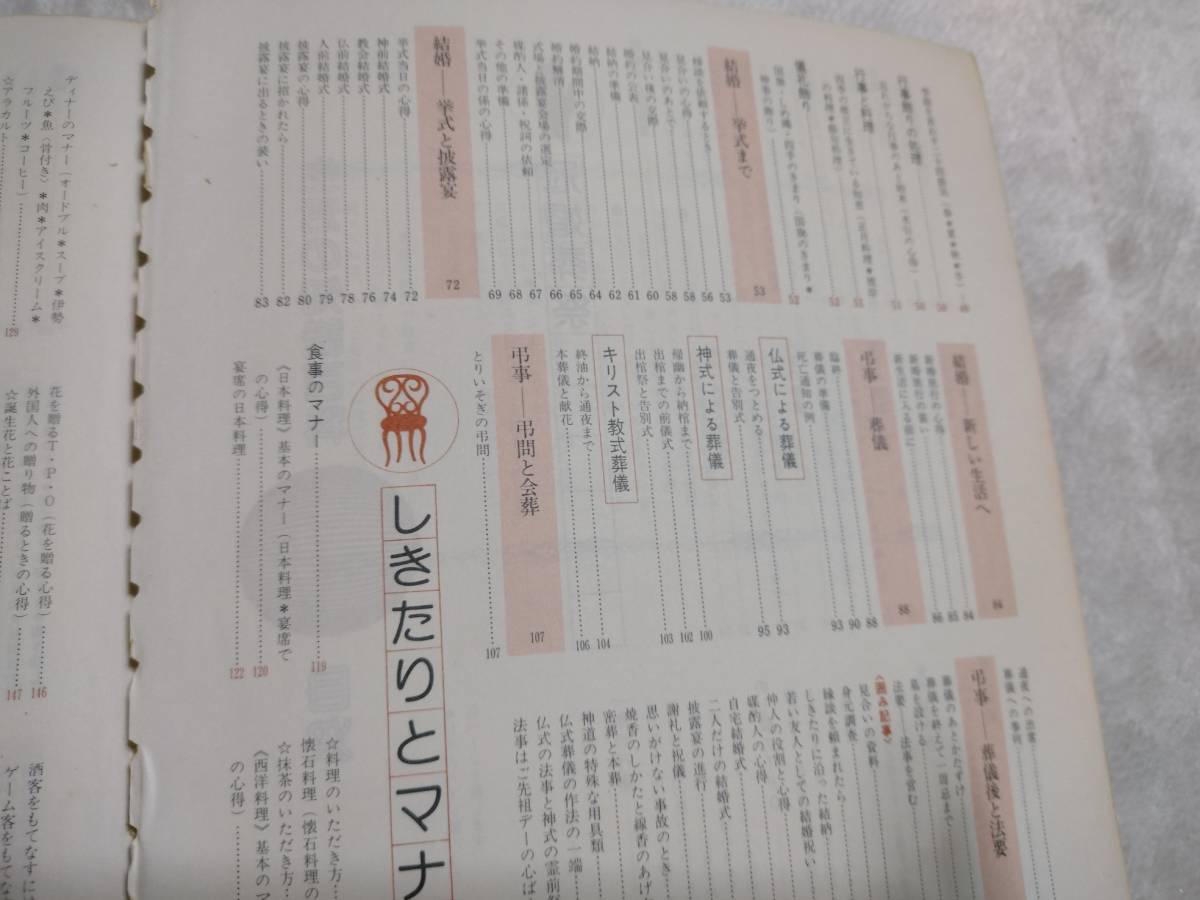 行事と料理
儀礼飾り
結婚――挙式まで 53
縁談を依頼するとき 53
見合いの心得 56
見合いのあとで 58
見合い後の交際 58
婚約の公表 60
結納の準備 61
結納 62
婚約期間中の交際 64
婚約解消 65
式場と披露宴会場の選定 66
媒酌人・諸係・祝詞の依頼 67
その他の準備 68
挙式当日の係の心得 69
結婚――挙式と披露宴 72
挙式当日の心得 72
神前結婚式 74
教会結婚式 76
仏前結婚式 78
人前結婚式 79
披露宴の心得 80
披露宴に招かれたら 82
披露宴に出るときの装い 83
結婚――新しい生活へ 84
新婚旅行の心得 84
新婚旅行の装い 85
新生活に入る前に 86
弔事――葬儀 88
臨終 88
葬儀の準備 90
死亡通知の例 93
仏式による葬儀
通夜をつとめる 93
葬儀と告別式 95
神式による葬儀
帰幽から納棺まで 100
出棺までの前儀式 102
出棺祭と告別式 103
キリスト教式葬儀
終油から通夜まで 104
本葬儀と献花 106
弔事――弔問と会葬 107
とりいそぎの弔問 107
通夜への出席
葬儀への参列
弔事――葬儀後と法要
葬儀のあとかたずけ
葬儀を終えて一周忌まで
墓を設ける
法要――法事を営む
〈囲み記事〉
見合いの資料
身元調査
縁談を頼まれたら
しきたりに沿った結納
若い友人としての結婚祝い
仲人の役割と心得
媒酌人の心得
自宅結婚式
二人だけの結婚式
披露宴の進行
謝礼と祝儀
思いがけない事故のとき
焼香のしかたと線香のあげ
密葬と本葬
神道の特殊な用具類
仏式葬儀の作法の一端
仏式の法事と神式の霊前祭
法事はご先祖デーの心ば
しきたりとマナ
食事のマナー 119
《日本料理》基本のマナー(日本料理＊宴席で
の心得) 120
宴席の日本料理 122
☆料理のいただき方
懐石料理(懐石料理の
☆抹茶のいただき方
《西洋料理》基本のマ
の心得)
ディナーのマナー(オードブル＊スープ＊伊勢
えび＊魚(骨付き)＊肉＊アイスクリーム＊
フルーツ＊コーヒー) 129
☆アラカルト
花を贈るT・P・O(花を贈る心得) 146
外国人への贈り物(贈るときの心得) 147
☆誕生花と花ことば
酒客をもてなすに
ゲーム客をもてな